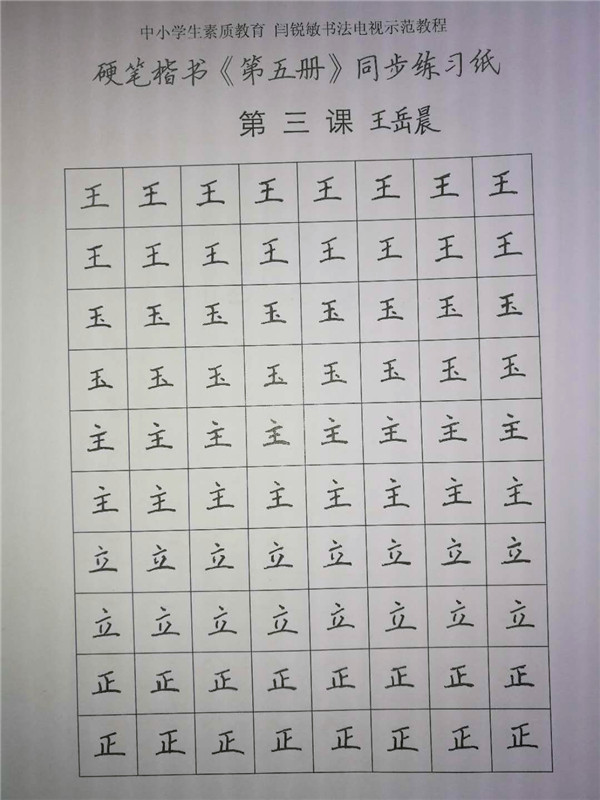 中小学生素质教育 闫锐敏书法电视示范教程
硬笔楷书《第五册》同步练习纸
第三课 王岳晨
王 王 王 王 王 王 王 王
王 王 王 王 王 王 王 王
玉 玉 玉 玉 玉 玉 玉 玉
玉 玉 玉 玉 玉 玉 玉 玉
主 主 主 主 主 主 主 主
主 主 主 主 主 主 主 主
立 立 立 立 立 立 立 立
立 立 立 立 立 立 立 立
正 正 正 正 正 正 正 正
正 正 正 正 正 正 正 正